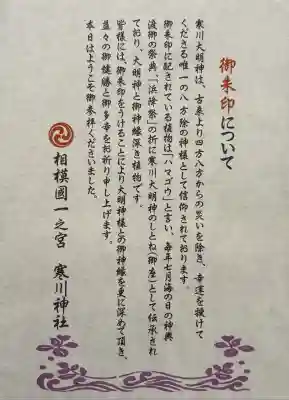 御朱印について
寒川大明神は、古来より四方八方からの災いを除き、幸運を授けて
くださる唯一の八方除の神様として信仰されております。
御朱印に配されている植物は「ハマゴウ」と言い、毎年七月海の日の神輿
渡御の祭典、「浜降祭」の折に寒川大明神のしとね（御座）として伝承され
ており、大明神と御神縁深き植物です。
皆様には、御朱印をうけることにより大明神様との御神縁を更に深めて頂き、
益々の御健勝と御多幸をお祈り申し上げます。
本日はようこそ御参拝くださいました。
相模國一之宮 寒川神社